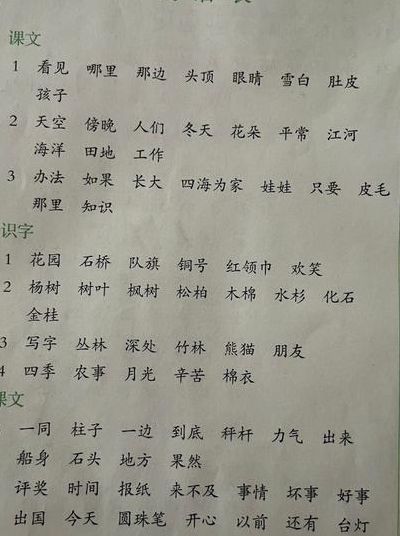 课文
1 看见 哪里 那边 头顶 眼睛 雪白 肚皮
孩子
2 天空 傍晚 人们 冬天 花朵 平常 江河
海洋 田地 工作
3 办法 如果 长大 四海为家 娃娃 只要 皮毛
那里 知识
识字
1 花园 石桥 队旗 铜号 红领巾 欢笑
2 杨树 树叶 枫树 松柏 木棉 水杉 化石
金桂
3 写字 丛林 深处 竹林 熊猫 朋友
4 四季 农事 月光 辛苦 棉衣
课文
一同 柱子 一边 到底 秤杆 力气 出来
船身 石头 地方 果然
评奖 时间 报纸 来不及 事情 坏事 好事
出国 今天 圆珠笔 开心 以前 还有 台灯